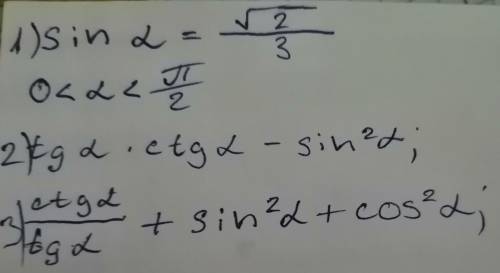 1) sin α = √2/3
0 < α < π/2
2) tg α · ctg α − sin²α;
3) ctg α/tg α + sin²α + cos²α;